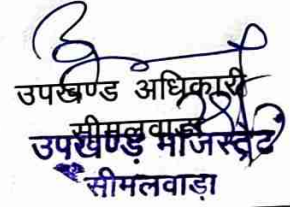 उपखण्ड अधिकारी
सीमलवाड़ा
उपखण्ड मजिस्ट्रेट
सीमलवाड़ा